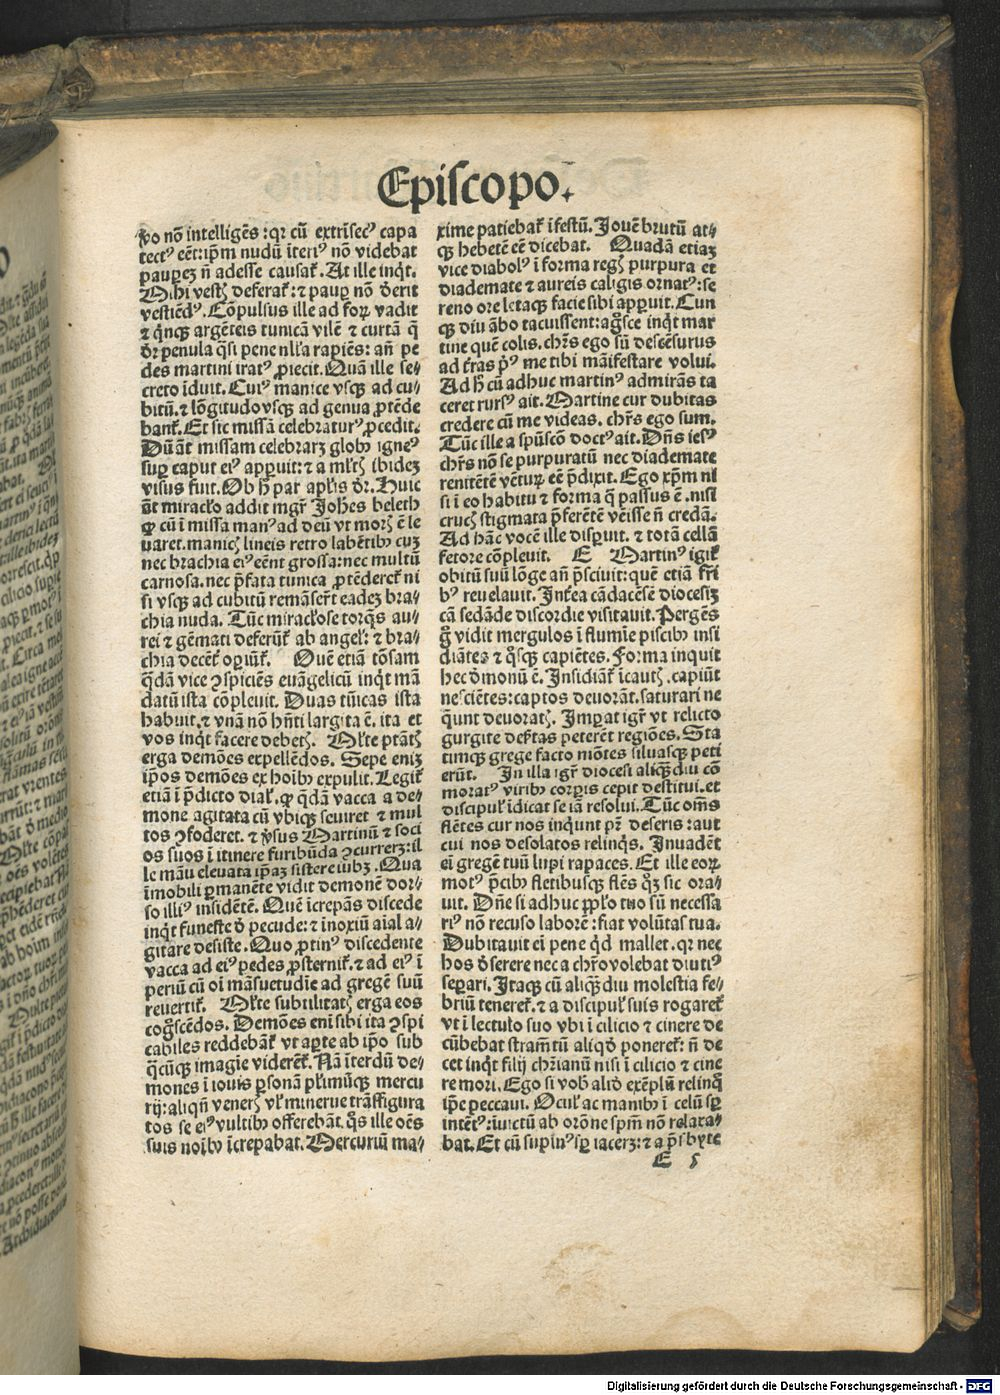 Episcopo.
ꝟo nō intelligēs: qꝛ cū extrīsecꝰ capa
tectꝰ eēt: ip̄m nudū īteriꝰ nō videbat
pauꝑeꝫ n̄ adesse causat̉. At ille inq̇t.
Mihi vestꝭ deferat̉: ⁊ pauꝑ nō d̓erit
vestiēdꝰ. Cōpulsus ille ad foꝝ vadit
⁊ qͥnqꝫ argēteis tunicā vilē ⁊ curtā q̄
dr̄ penula q̄si pene nll̓a rapiēs: an̄ pe
des martini iratꝰ ꝓiecit. Quā ille se⸗
creto īduit. Cuiꝰ manice vsqꝫ ad cu⸗
bitū. ⁊ lōgitudo vsqꝫ ad genua ꝓtēde
bant̉. Et sic missā celebraturꝰ ꝓcedit.
Dū āt missam celebraret globꝰ igneꝰ
suꝑ caput eiꝰ apꝑuit: ⁊ a ml̓tꝭ ibideꝫ
visus fuit. Ob h̓ par apl̓is dr̄. Huic
āt miracl̓o addit mgr̄ Joh̄es beleth
ꝙ cū ī missa manꝰ ad deū vt morꝭ ē le
uaret. manicꝭ lineis retro labētibꝰ cuꝫ
nec brachia eiꝰ eēnt grossa: nec multū
carnosa. nec p̄fata tunica ꝓtēderet̉ ni
si vsqꝫ ad cubitū remāser̄t eadeꝫ bra⸗
chia nuda. Tūc miracl̓ose torq̄s au⸗
rei ⁊ gēmati deferūt̉ ab angel̓: ⁊ bra⸗
chia decēt̉ oꝑiūt̉. Quē etiā tōsam
q̄dā vice ꝯspiciēs euāgelicū inq̇t mā
datū ista cōpleuit. Duas tūicas ista
habuit. ⁊ vnā nō hn̄ti largita ē. ita et
vos inq̇t facere debetꝭ. Ml̓te ptāt̄ꝭ
erga demōes expellēdos. Sepe eniꝫ
ip̄os demōes ex hoībꝰ expulit. Legit̉
etiā ī p̄dicto dial̓. ꝙ q̄dā vacca a de⸗
mone agitata cū vbiqꝫ seuiret ⁊ mul
tos ꝯfoderet. ⁊ ꝟsus Martinū ⁊ soci
os suos ī itinere furibūda ꝯcurreret: il
le manu eleuata ip̄aꝫ sistere iubꝫ. Qua
īmobili ꝑmanēte vidit demonē dor⸗
so illiꝰ insidētē. Quē īcrepās discede
inq̇t funeste d̓ pecude: ⁊ inoxiū aīal a⸗
gitare desiste. Quo ꝓtinꝰ discedente
vacca ad eiꝰ pedes ꝓsternit̉. ⁊ ad eiꝰ ī
periū cū oī māsuetudīe ad gregē suū
reuertit̉. Ml̓te subtilitatꝭ erga eos
cog̓scēdos. Demōes enī sibi ita ꝯspi
cabiles reddebāt̉ vt aꝑte ab ip̄o sub
q̄cūqꝫ imagīe viderēt̉. Nā īterdū de⸗
mones ī iouis ꝑsonā pl̓imūqꝫ mercu
rij: aliqn̄ venerꝭ vl̓ minerue trāsfigura
tos se eiꝰ vultibꝰ offerebāt. q̄s ille oēs
suis noībꝰ īcrepabat. Mercuriū ma⸗
xime patiebat̉ īfestū. Jouē brutū at⸗
qꝫ hebetē eē dicebat. Quadā etiaꝫ
vice diabolꝰ ī forma regꝭ purpura et
diademate ⁊ aureis caligis ornatꝰ: se
reno ore letaqꝫ facie sibi apꝑuit. Cun
qꝫ diu ābo tacuissent: ag̓sce inq̇t mar
tine quē colis. chr̄s ego sū descēsurus
ad t̓ras pͥꝰ me tibi māifestare volui.
Ad h̓ cū adhuc martinꝰ admirās ta
ceret rursꝰ ait. Martine cur dubitas
credere cū me videas. chr̄s ego sum.
Tūc ille a spūscō doctꝰ ait. Dn̄s iesꝰ
chr̄s nō se purpuratū nec diademate
renitētē vētuꝝ eē p̄dixit. Ego xp̄m nī
si ī eo habitu ⁊ forma q̄ passus ē. nisi
crucꝭ stigmata p̄ferētē vēisse n̄ credā.
Ad hāc vocē ille disꝑuit. ⁊ totā cellā
fetore cōpleuit. E Martinꝰ igit̉
obitū suū lōge an̄ p̄sciuit: quē etiā fr̄i
bꝰ reuelauit. Int̓ea cādacēse diocesiꝫ
cā sedāde discordie visitauit. Pergēs
g̊ vidit mergulos ī flumīe piscibꝰ insi
diātes ⁊ q̊sqꝫ capiētes. Forma inquit
hec d̓monū ē. Insidiāt̉ īcautꝭ. capiūt
nesciētes: captos deuorāt. saturari ne
q̄unt deuoratꝭ. Imꝑat igit̉ vt relicto
gurgite deẞtas peterēt regiōes. Sta
timqꝫ grege facto mōtes siluasqꝫ peti
erūt. In illa igr̄ diocesi aliq̄diu cō
moratꝰ viribꝰ corꝑis cepit destitui. et
discipul̓ īdicat se iā resolui. Tūc om̄s
flētes cur nos inqͥunt pr̄ deseris: aut
cui nos desolatos relinqͥs. Inuadēt
ei̅ gregē tuū lupi rapaces. Et ille eoꝝ
motꝰ p̄cibꝰ fletibusqꝫ flēs q̊ꝫ sic ora⸗
uit. Dn̄e si adhuc ppl̓o tuo sū necessa
riꝰ nō recuso laborē: fiat volūtas tua.
Dubitauit ei̅ pene qͥd mallet. qꝛ nec
hos d̓serere nec a chr̄o volebat diutiꝰ
seꝑari. Itaqꝫ cū aliq̄diu molestia fe⸗
briū teneret̉. ⁊ a discipul̓ suis rogaret̉
vt ī lectulo suo vbi ī cilicio ⁊ cinere de
cūbebat stramtū aliqd̓ poneret̉: n̄ de
cet inq̇t filij chr̄ianū nisi ī cilicio ⁊ cine
re mori. Ego si vob̓ aliud exēplū relinq̊
ip̄e peccaui. Ocul̓ ac manibꝰ ī celū sꝑ
intētꝰ: īuictū ab orōne spm̄ nō relaxa⸗
bat. Et cū supinꝰ sꝑ iaceret: ⁊ a p̄sbyte
E 5
Digitalisierung gefördert durch die Deutsche Forschungsgemeinschaft - DFG